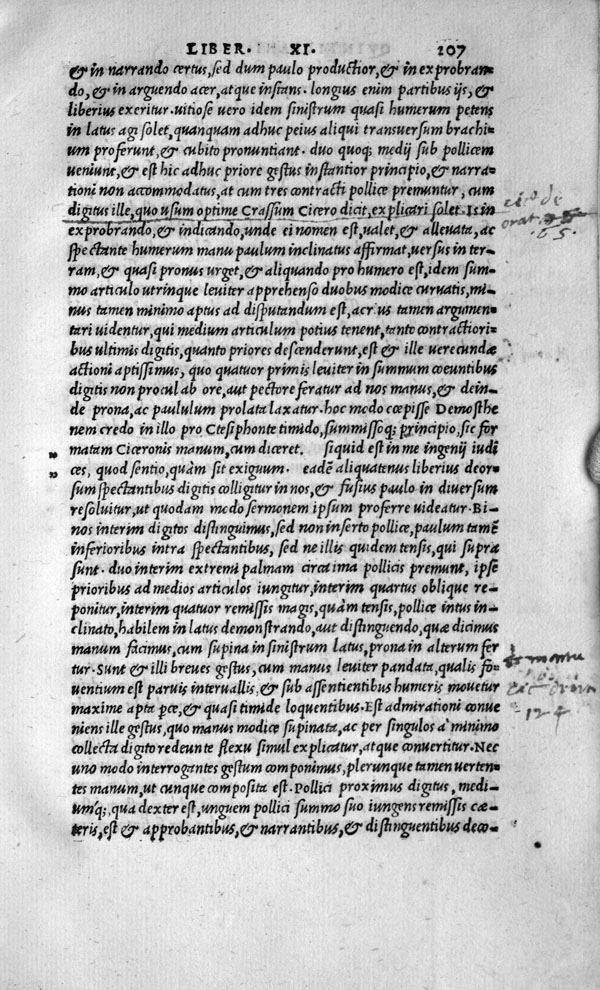 LIBER. XI. 207
& in narrando certus, sed dum paulo productior, & in exprobran-
do, & in arguendo acer, atque instans. longius enim partibus ijs, &
liberius exeritur. vitiose vero idem sinistrum quasi humerum petens
in latus agi solet, quanquam adhuc peius aliqui transversum brachi-
um proferunt, & cubito pronuntiant. duo quoq; medij sub pollicem
veniunt, & est hic adhuc priore gestus instantior principio, & narra-
tioni non accommodatus, at cum tres contracti pollice premuntur, cum
digitus ille, quo usum optime Crassum Cicero dicit, explicari solet. Is in
exprobrando, & indicando, unde ei nomen est, valet, & allevata, ac
spectante humerum manu paulum inclinatus affirmat, versus in ter-
ram, & quasi pronus urget, & aliquando pro humero est, idem sum-
mo articulo utrinque leviter apprehenso duobus modice curvatis, mi-
nus tamen minimo aptus ad disputandum est, acrius tamen argumen-
tari videntur, qui medium articulum potius tenent, tanto contractiori-
bus ultimis digitis, quanto priores descenderunt, est & ille verecundæ
actioni aptissimus, quo quatuor primis leviter in summum coeuntibus
digitis non procul ab ore, aut pectore feratur ad nos manus, & dein-
de prona, ac paululum prolata laxatur. hoc modo cœpisse Demosthe
nem credo in illo pro Ctesiphonte timido, summissoq; principio, sic for
matam Ciceronis manum, cum diceret. siquid est in me ingenij iudi
„ ces, quod sentio, quàm sit exiguum. eadẽ aliquatenus liberius deor-
„ sum spectantibus digitis colligitur in nos, & fusius paulo in diversum
resolvitur, ut quodam modo sermonem ipsum proferre videatur. Bi-
nos interim digitos distinguimus, sed non inserto pollice, paulum tamẽ
inferioribus intra spectantibus, sed ne illis quidem tensis, qui supra
sunt. duo interim extremi palmam circa ima pollicis premunt, ipse
prioribus ad medios articulos iungitur, interim quartus oblique re-
ponitur, interim quatuor remissis magis, quàm tensis, pollice intus in-
clinato, habilem in latus demonstrando, aut distinguendo, quæ dicimus
manum facimus, cum supina in sinistrum latus, prona in alterum fer
tur. Sunt & illi breves gestus, cum manus leviter pandata, qualis fo-
ventium est parvis intervallis, & sub assentientibus humeris movetur
maxime apta parce, & quasi timide loquentibus. Est admirationi conve
niens ille gestus, quo manus modice supinata, ac per singulos à minimo
collecta digito redeunte flexu simul explicatur, atque convertitur. Nec
uno modo interrogantes gestum componimus, plerunque tamen verten-
tes manum, ut cunque composita est. Pollici proximus digitus, medi-
umq;, qua dexter est, unguem pollici summo suo iungens remissis cæ-
teris, est & approbantibus, & narrantibus, & distinguentibus deco-
de
orat.
65.
manu
124